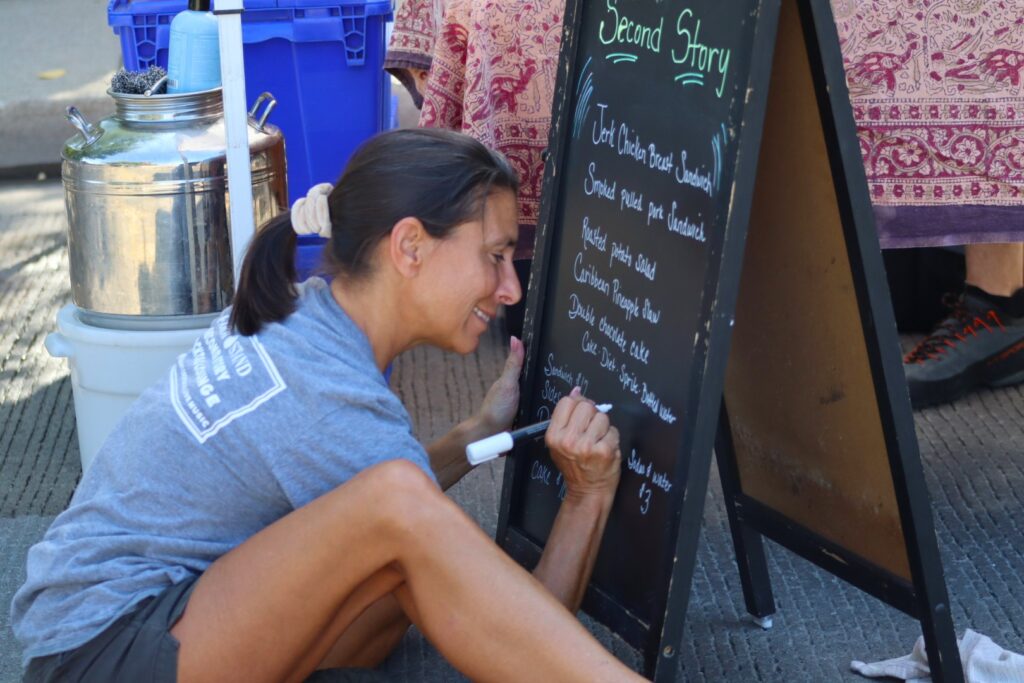 Second Story
Jerk Chicken Breast Sandwich
Smoked pulled pork Sandwich
Roasted potato salad
Caribbean Pineapple Slaw
Double chocolate cake
Coke · Diet · Sprite · Bottled water
Sandwich
Sides
Sodas & water
$3